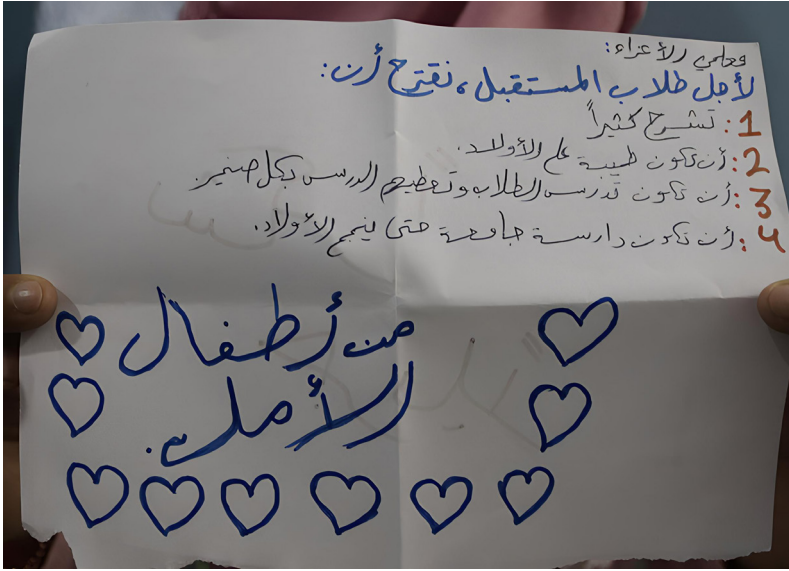 معلمي الأعزاء:
لأجل طلاب المستقبل، نقترح أن:
1: تشرح كثيراً
2: أن تكون طيبة علم الأولاد.
3: أن تكون تدرس الطلاب وتعطيهم الدرس بكل ضمير.
4: أن تكون دارسة جامعة حتى ينجح الأولاد.
من أطفال
الأمل.